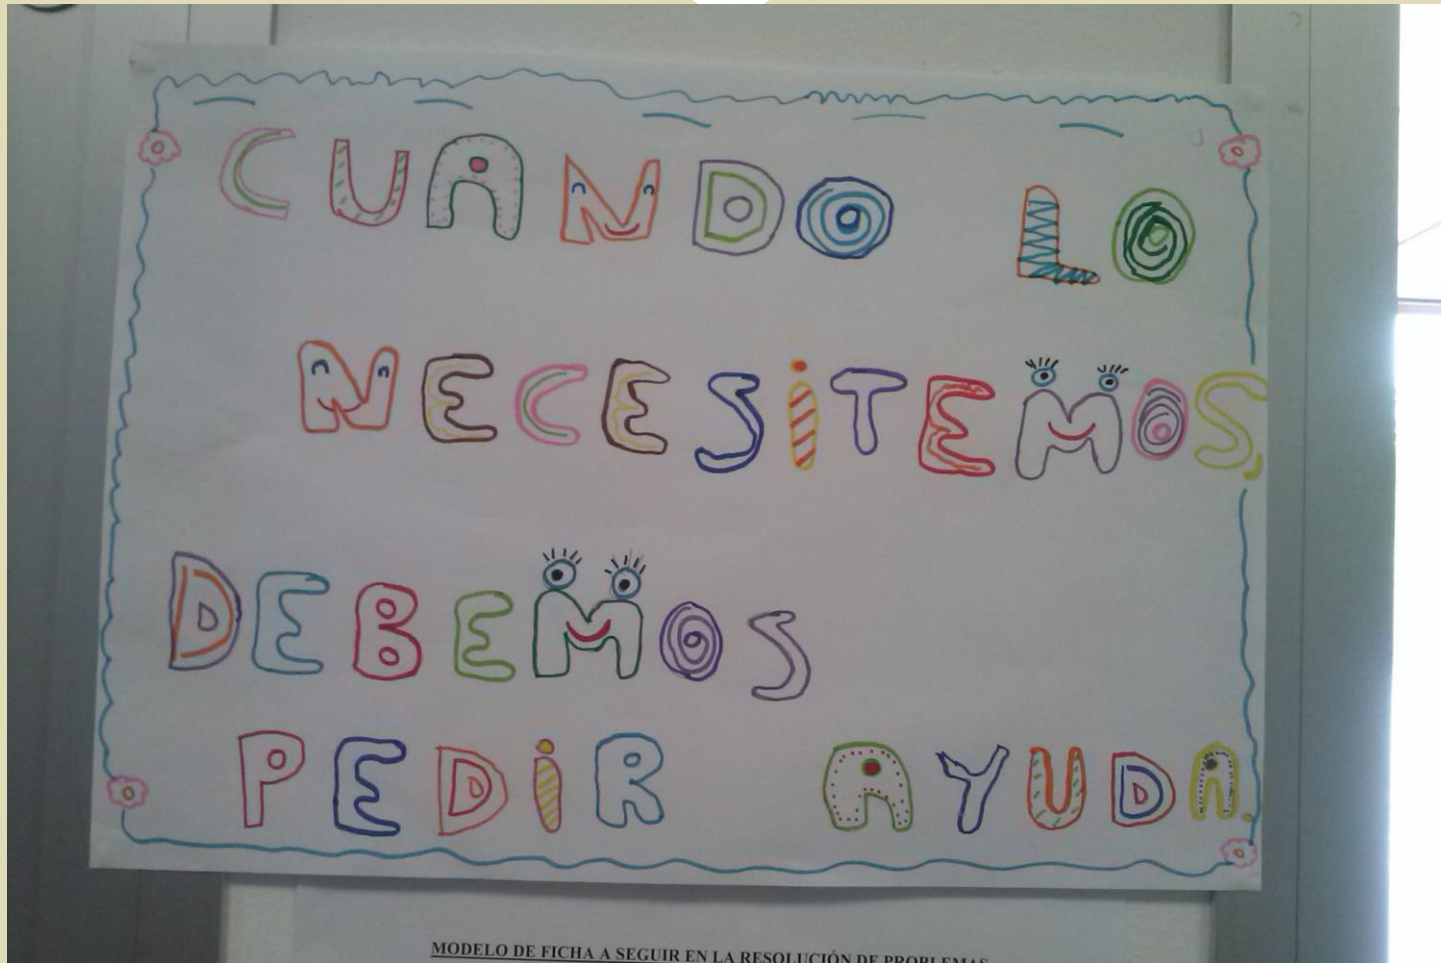 CUANDO LO
NECESiTEMOS,
DEBEMOS
PEDiR AYUDA.
MODELO DE FICHA A SEGUIR EN LA RESOLUCIÓN DE PROBLEMAS